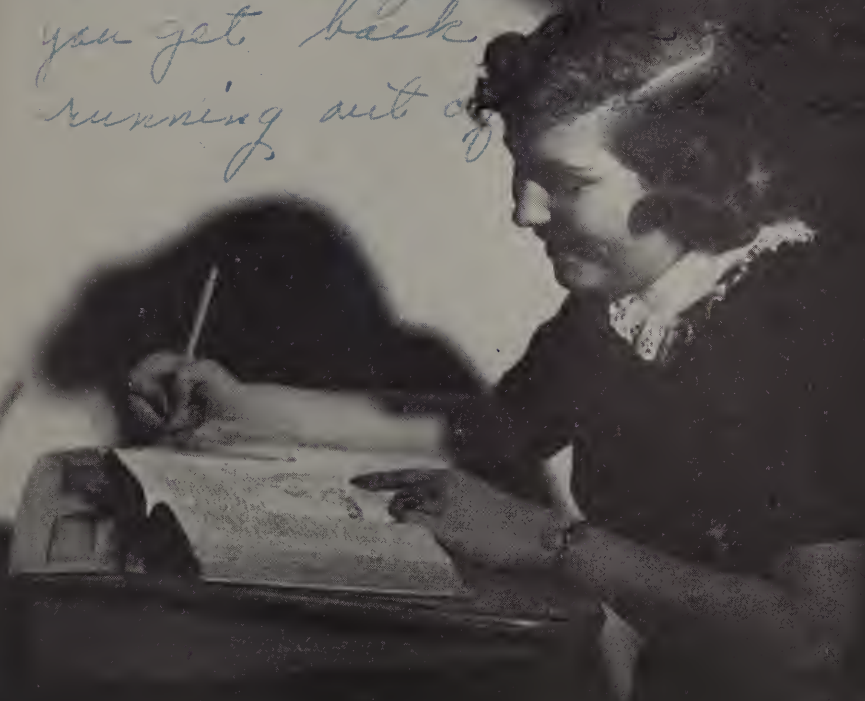 you get back
running out of